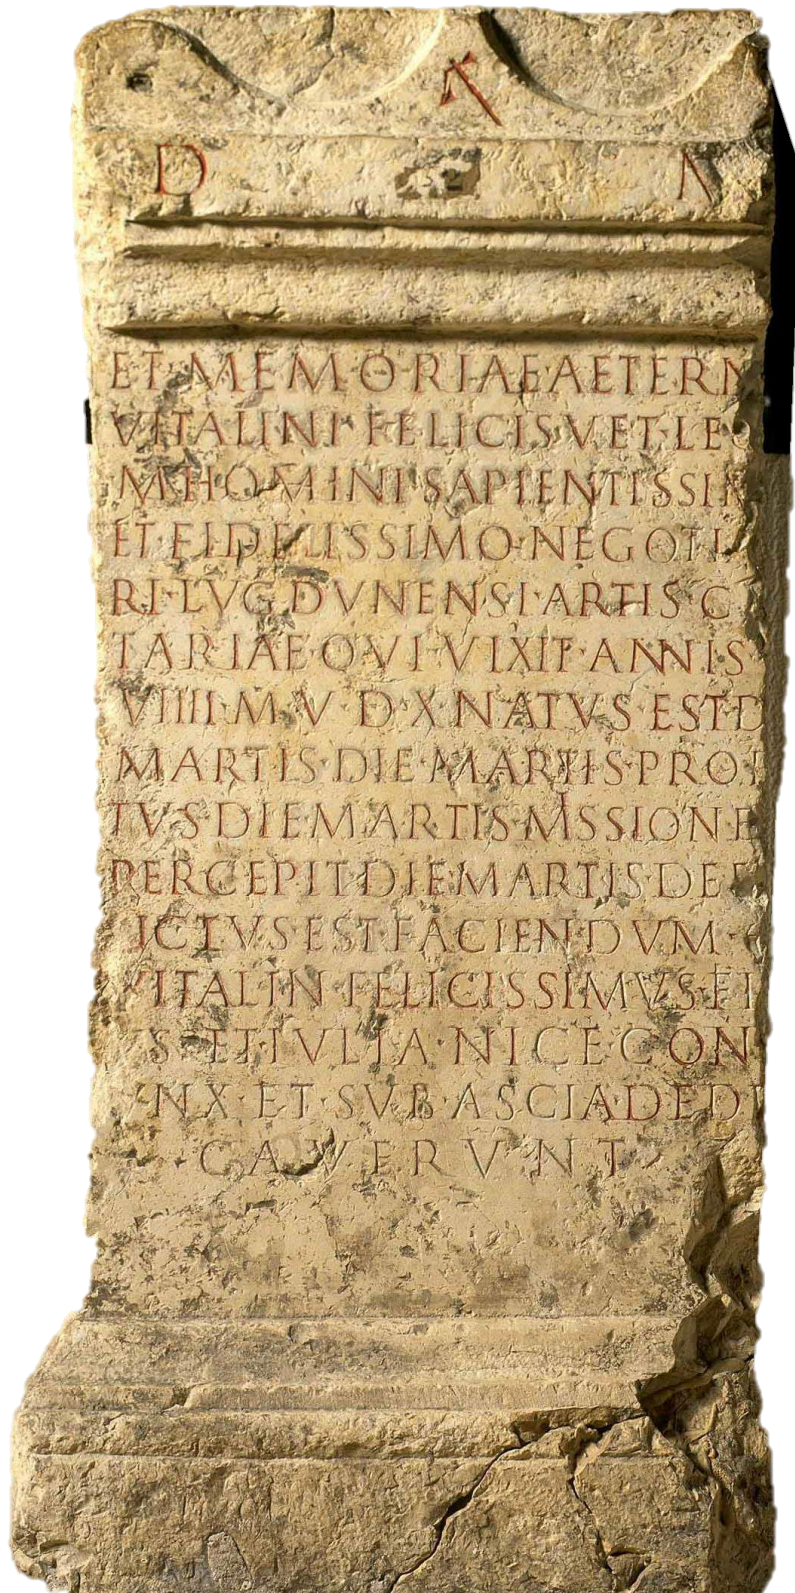 D M
ET·MEMORIAE·AETERN
VITALINI·FELICIS·VET·LEG
M·HOMINI·SAPIENTISSIM
ET·FIDELISSIMO·NEGOTI
RI·LVGDVNENSI·ARTIS·C
TARIAE·QVI·VIXIT·ANNIS
VIIII·M·V·D·X·NATVS·EST·D
MARTIS·DIE·MARTIS·PROF
TVS·DIE·MARTIS·MISSIONE
PERCEPIT·DIE·MARTIS·DEF
VCTVS·EST·FACIENDVM·C
VITALIN·FELICISSIMVS·FI
S·ET·IVLIA·NICE·CON
NX·ET·SVB·ASCIA·DEDI
CAVERVNT